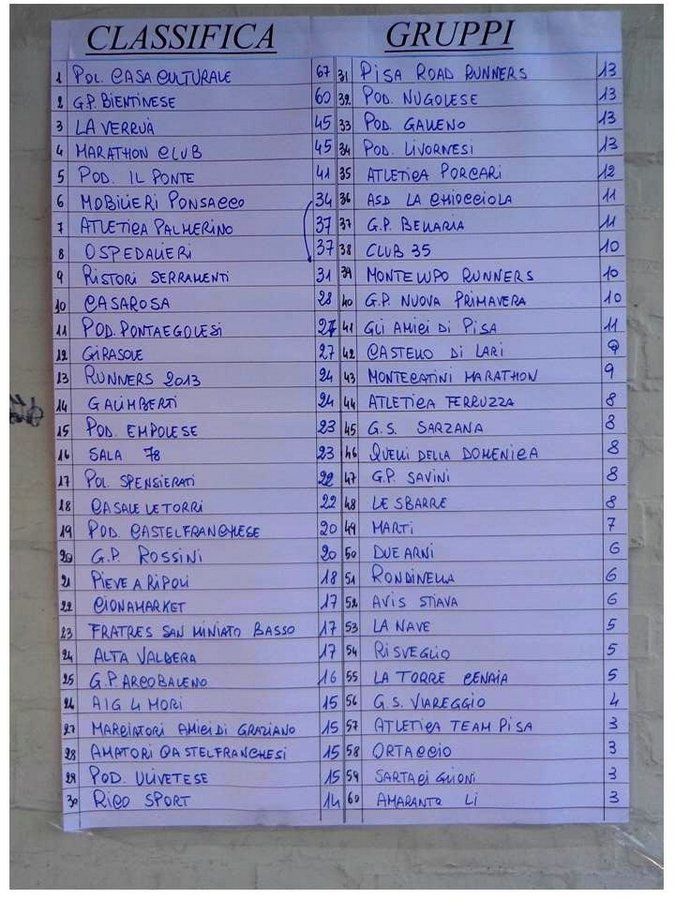 CLASSIFICA GRUPPI
1 POL. CASA CULTURALE 67
2 G.P. BIENTINESE 60
3 LA VERRUA 45
4 MARATHON CLUB 45
5 POD. IL PONTE 41
6 MOBILIERI PONSACCO 34
7 ATLETICA PALMERINO 37
8 OSPEDALIERI 37
9 RISTORI SERRAMENTI 31
10 CASAROSA 28
11 POD. PONTAEGOLESI 27
12 GIRASOLE 27
13 RUNNERS 2013 24
14 GALIMBERTI 24
15 POD. EMPOLESE 23
16 SALA 78 23
17 POL. SPENSIERATI 22
18 CASALE LE TORRI 22
19 POD. CASTELFRANCHESE 20
20 G.P. ROSSINI 20
21 PIEVE A RIPOLI 18
22 CIONAMARKET 17
23 FRATRES SAN MINIATO BASSO 17
24 ALTA VALDERA 17
25 G.P. ARCOBALENO 16
26 AIG 4 MORI 15
27 MARCIATORI AMICI DI GRAZIANO 15
28 AMATORI CASTELFRANCHESI 15
29 POD. ULIVETESE 15
30 RICO SPORT 14
31 PISA ROAD RUNNERS 13
32 POD. NUGOLESE 13
33 POD. GALLENO 13
34 POD. LIVORNESI 13
35 ATLETICA PORCARI 12
36 ASD LA CHIOCCIOLA 11
37 G.P. BELLARIA 11
38 CLUB 35 10
39 MONTELUPO RUNNERS 10
40 G.P. NUOVA PRIMAVERA 10
41 GLI AMICI DI PISA 11
42 CASTELLO DI LARI 9
43 MONTECATINI MARATHON 9
44 ATLETICA FERRUZZA 8
45 G.S. SARZANA 8
46 QUELLI DELLA DOMENICA 8
47 G.P. SAVINI 8
48 LE SBARRE 8
49 MARTI 7
50 DUE ARNI 6
51 RONDINELLA 6
52 AVIS STIAVA 6
53 LA NAVE 5
54 RISVEGLIO 5
55 LA TORRE CENAIA 5
56 G.S. VIAREGGIO 4
57 ATLETICA TEAM PISA 3
58 ORTACCIO 3
59 SARTACI GLIONI 3
60 AMARANTO LI 3